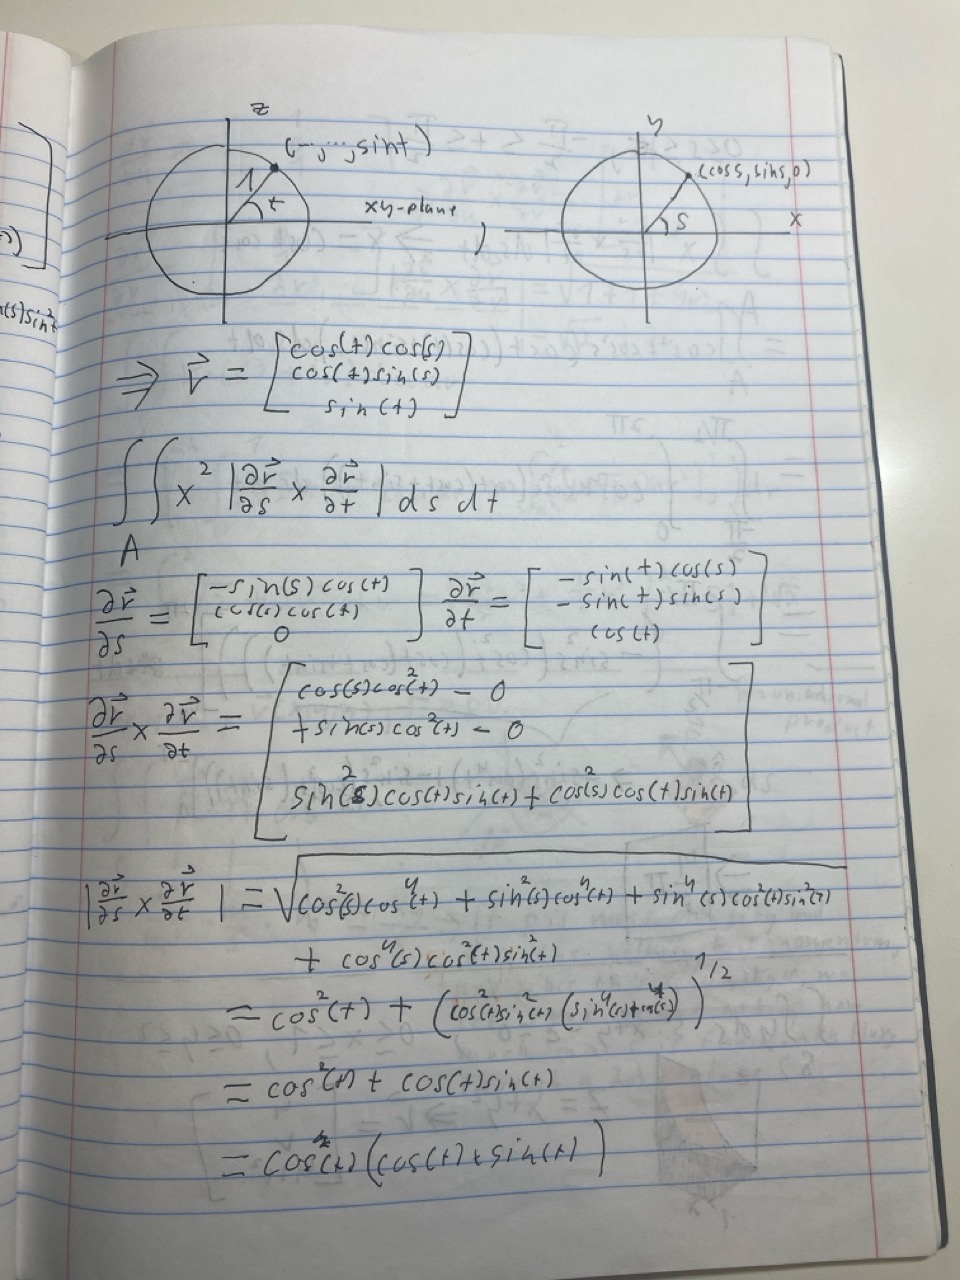 z
(-,-,sint)
1
t
xy-plane
,
y
(coss, sins, 0)
s
x
⇒ r⃗ = [cos(t) cos(s)
cos(t) sin(s)
sin(t)]
∫∫ x² |∂r⃗/∂s × ∂r⃗/∂t| ds dt
A
∂r⃗/∂s = [-sin(s) cos(t)
cos(s) cos(t)
0] ∂r⃗/∂t = [-sin(t) cos(s)
-sin(t) sin(s)
cos(t)]
∂r⃗/∂s × ∂r⃗/∂t = [cos(s) cos²(t) - 0
+ sin(s) cos²(t) - 0
sin²(s) cos(t) sin(t) + cos²(s) cos(t) sin(t)]
|∂r⃗/∂s × ∂r⃗/∂t| = √cos²(s) cos⁴(t) + sin²(s) cos⁴(t) + sin⁴(s) cos²(t) sin²(t)
+ cos⁴(s) cos²(t) sin²(t)
= cos²(t) + (cos²(t) sin²(t) (sin⁴(s) + cos⁴(s)))^1/2
= cos²(t) + cos(t) sin(t)
= cos(t) (cos(t) + sin(t))